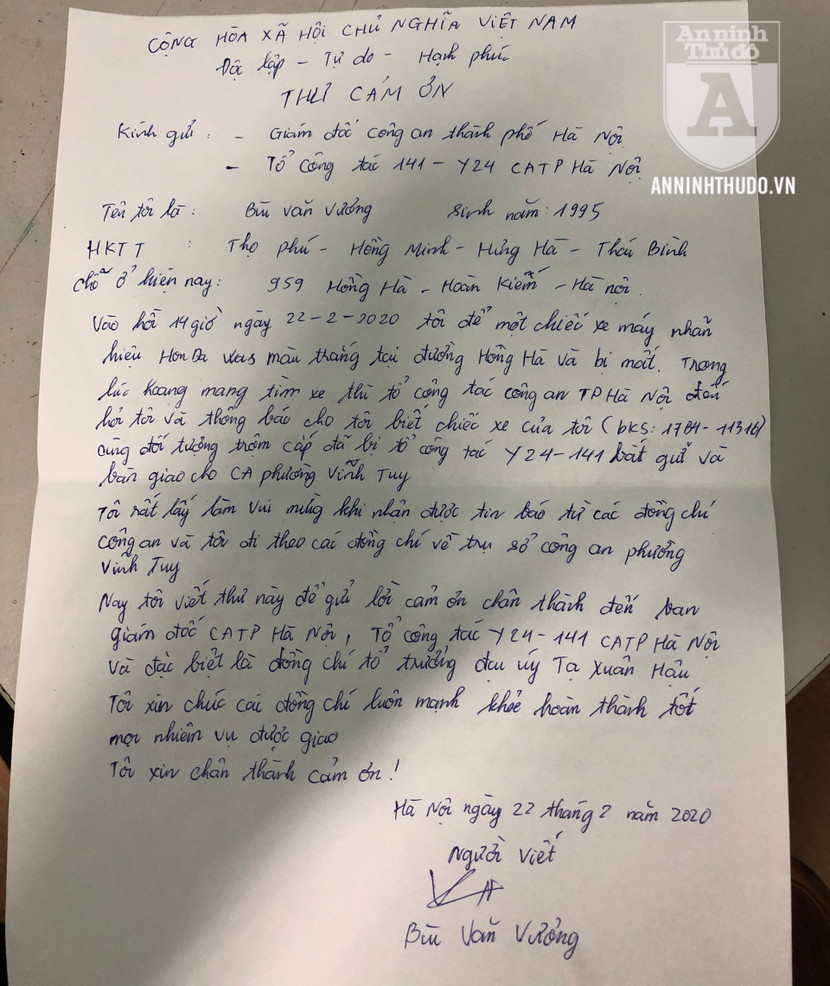 An ninh
Thủ đô
A
ANNINHTHUDO.VN
CỘNG HÒA XÃ HỘI CHỦ NGHĨA VIỆT NAM
Độc lập - Tự do - Hạnh phúc
THƯ CẢM ƠN
Kính gửi : - Giám đốc công an thành phố Hà Nội
- Tổ công tác 141 - Y24 CATP Hà Nội
Tên tôi là: Bùi Văn Vưởng sinh năm: 1995
HKTT : Thọ phú - Hồng Minh - Hưng Hà - Thái Bình
chỗ ở hiện nay: 959 Hồng Hà - Hoàn Kiếm - Hà nội.
Vào hồi 14 giờ ngày 22-2-2020 tôi để một chiếc xe máy nhãn
hiệu HonDa Wave màu trắng tại đường Hồng Hà và bị mất. Trong
lúc hoang mang tìm xe thì tổ công tác công an TP Hà Nội đến
hỏi tôi và thông báo cho tôi biết chiếc xe của tôi (bKS: 17B4-11316)
cùng đối tượng trộm cắp đã bị tổ công tác Y24-141 bắt giữ và
bàn giao cho CA phường Vĩnh Tuy
Tôi rất lấy làm vui mừng khi nhận được tin báo từ các đồng chí
công an và tôi đi theo các đồng chí về trụ sở công an phường
Vĩnh Tuy
Nay tôi viết thư này để gửi lời cảm ơn chân thành đến ban
giám đốc CATP Hà Nội, Tổ công tác Y24-141 CATP Hà Nội
và đặc biệt là đồng chí tổ trưởng đại úy Tạ Xuân Hậu
Tôi xin chúc các đồng chí luôn mạnh khỏe hoàn thành tốt
mọi nhiệm vụ được giao
Tôi xin chân thành cảm ơn!
Hà Nội ngày 22 tháng 2 năm 2020
Người viết
Bùi Văn Vưởng